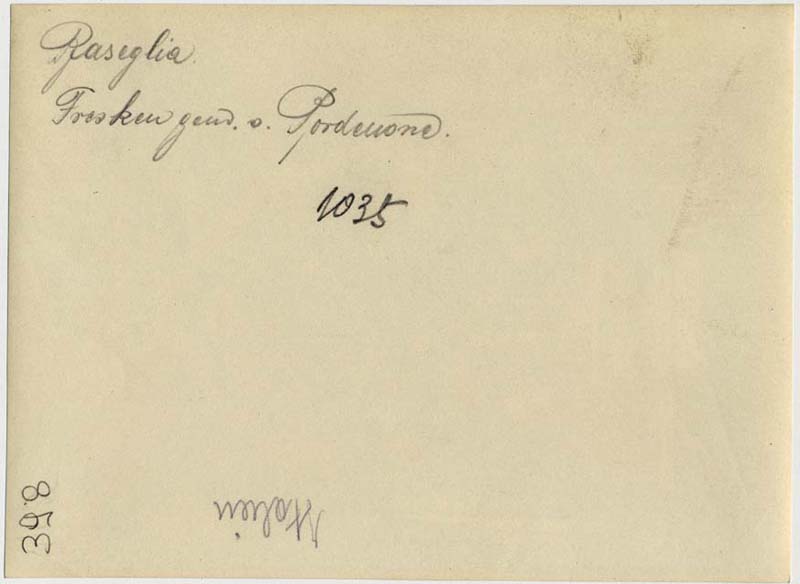 Raseglia.
Fresken gem. v. Pordenone.
1035
Italien
398